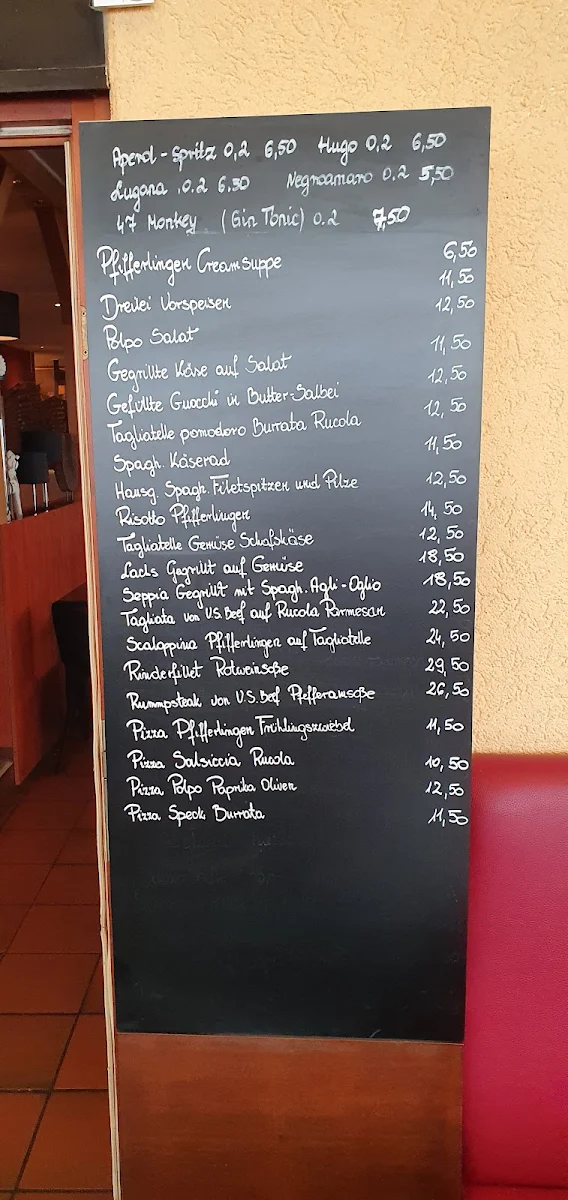 Aperol-Spritz 0,2 6,50 Hugo 0.2 6,50
Lugana .0.2 6.30 Negroamaro 0.2 5,50
47 Monkey (Gin Tonic) 0.2 7,50
Pfifferlingen Creamsuppe 6,50
Dreilei Vorspeisen 11,50
Polpo Salat 12,50
Gegrillte Käse auf Salat 11,50
Gefüllte Gnocchi in Butter-Salbei 12,50
Tagliatelle pomodoro Burrata Rucola 12,50
Spagh. Käserad 11,50
Hausg. Spagh. Filetspitzen und Pilze 12,50
Risotto Pfifferlingen 14,50
Tagliatelle Gemüse Schafskäse 12,50
Lachs Gegrillt auf Gemüse 18,50
Seppia Gegrillt mit Spagh. Agli-Oglio 18,50
Tagliata von U.S. Beef auf Rucola Parmesan 22,50
Scaloppina Pfifferlingen auf Tagliatelle 24,50
Rinderfillet Rotweinsoße 29,50
Rummpsteak von U.S. Beef Pfefferamsoße 26,50
Pizza Pfifferlingen Frühlingszwiebel 11,50
Pizza Salsiccia Rucola 10,50
Pizza Polpo Paprika Oliven 12,50
Pizza Speck Burrata 11,50